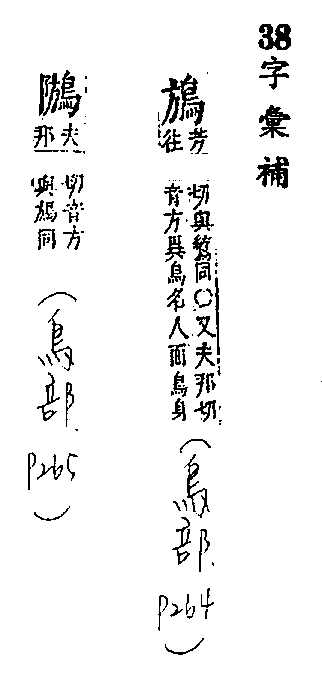 38字彙補
鴋
芳往
切與鶭同〇又夫那切
音方異鳥名人面鳥身
(鳥部. P264)
夫那
切音方
與鴋同
(鳥部. P265)